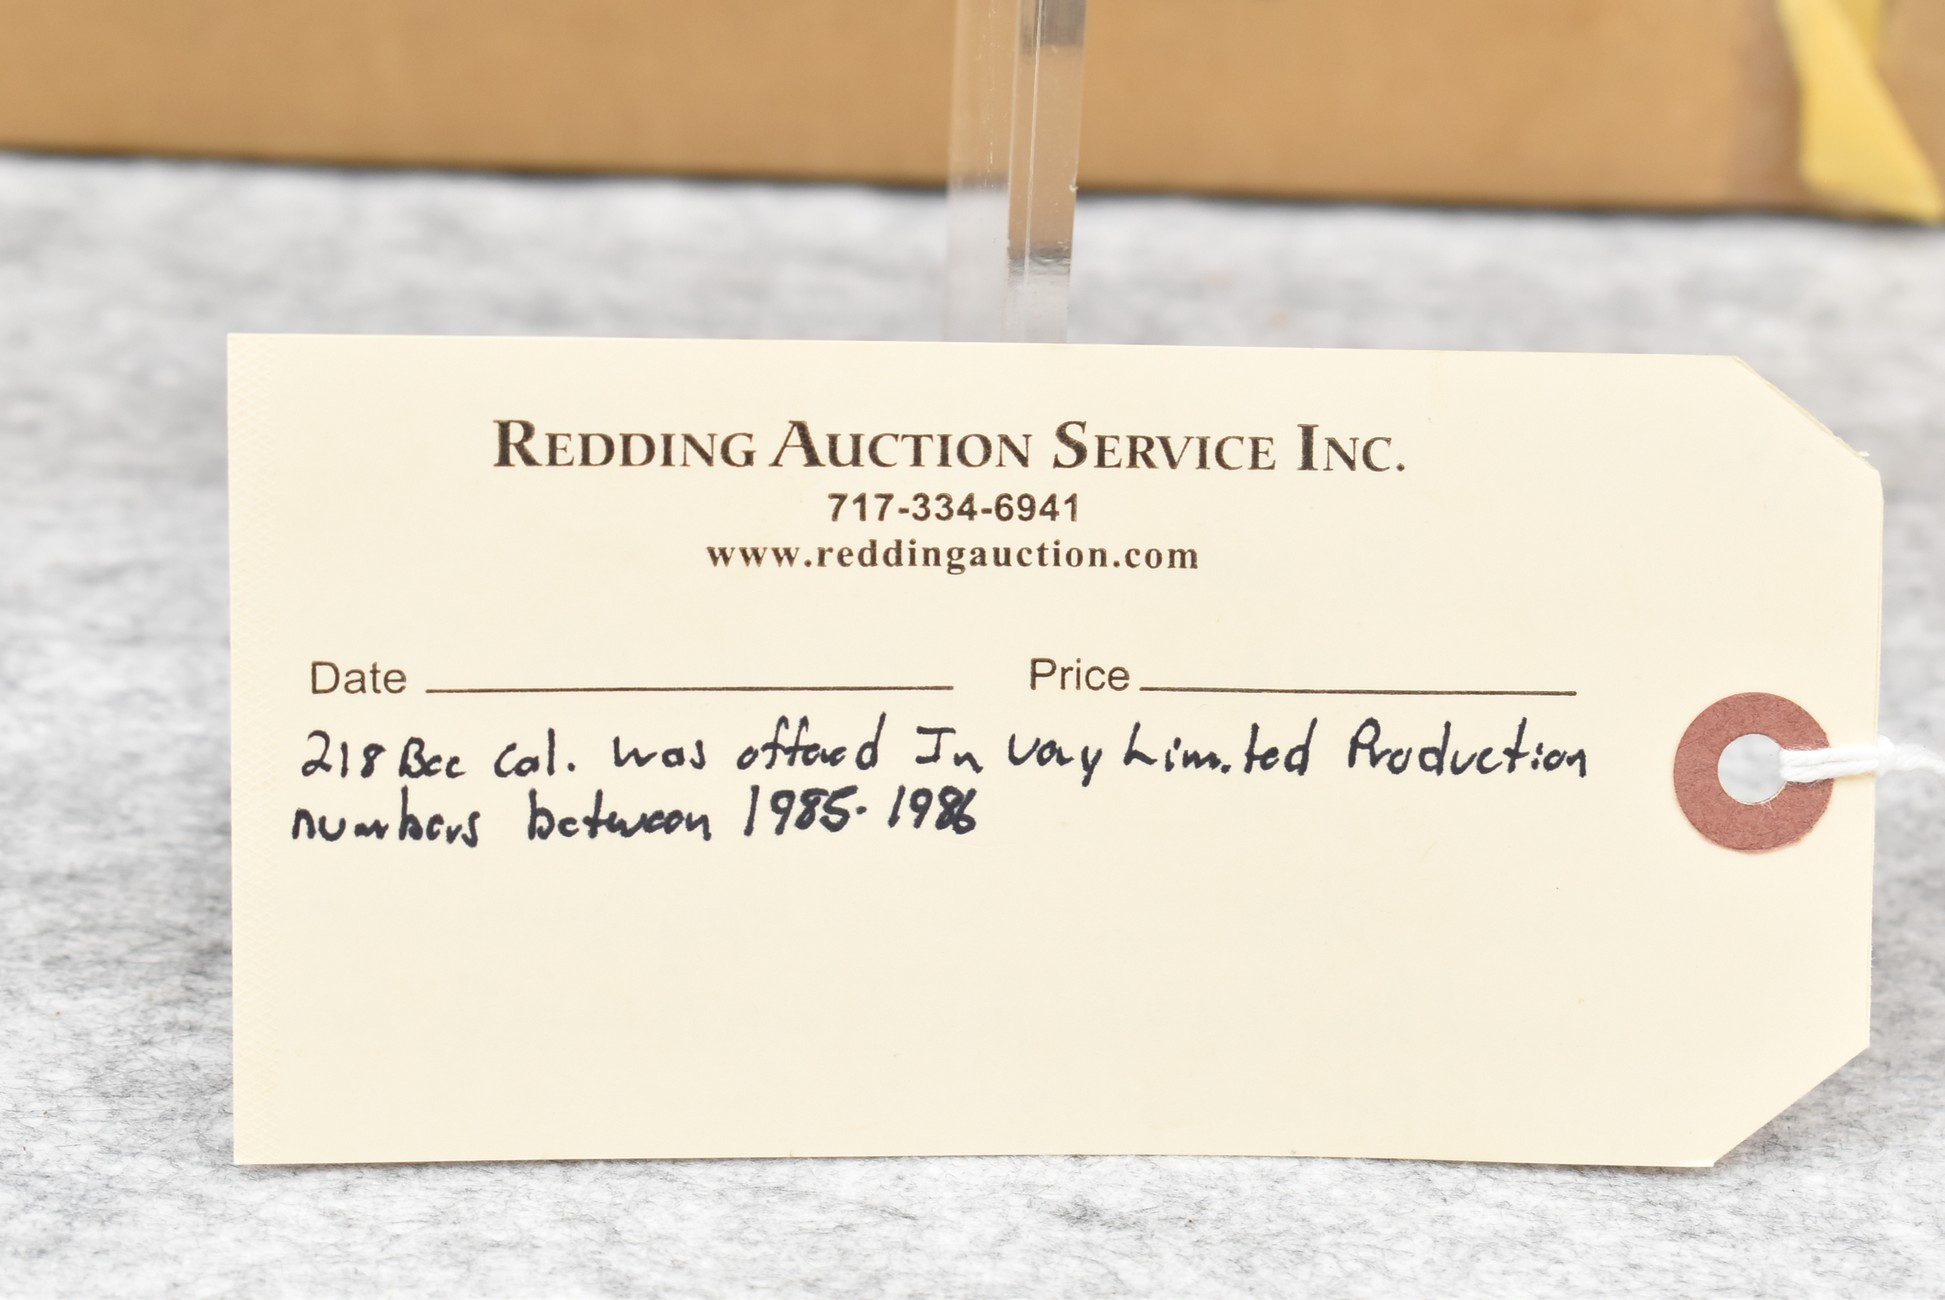 REDDING AUCTION SERVICE INC.
717-334-6941
www.reddingauction.com
Date Price
218 Bee Cal. was offered In very Limited Production
numbers between 1985-1986